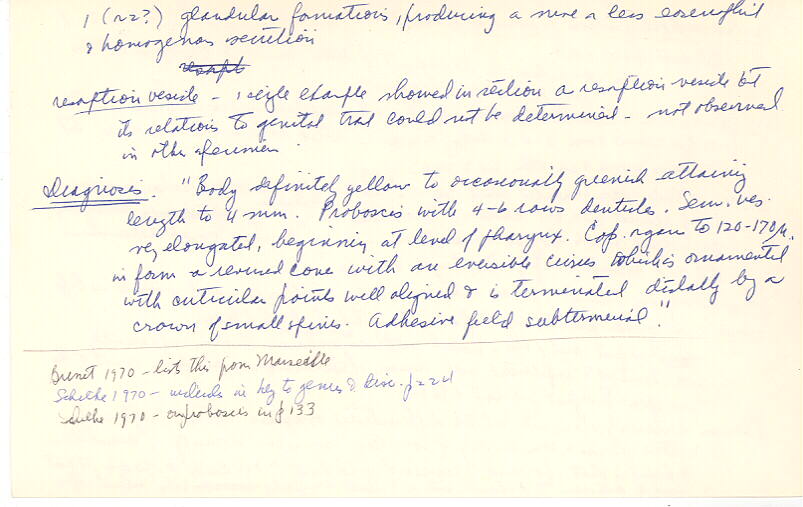 1 (or 2?) glandular formations, producing a more or less eosinophil
& homogenous secretion
resorption vesicle - 1 single example showed in section a resorption vesicle but
its relations to genital tract could not be determined - not observed
in other specimen.
Diagnosis. "Body definitely yellow to occasionally greenish attaining
length to 4 mm. Proboscis with 4-6 rows denticles. Sem. ves.
very elongated, beginning at level of pharynx. Cop. organ to 120-170µ.
in form a reversed cone with an eversible cirrus which is ornamented
with cuticular points well aligned & is terminated distally by a
crown of small spines. Adhesive field subterminal."
Brunet 1970 - lists this from Marseille
Schilke 1970 - includes in key to genus & disc. p 224
Schilke 1970 - on proboscis in f 133